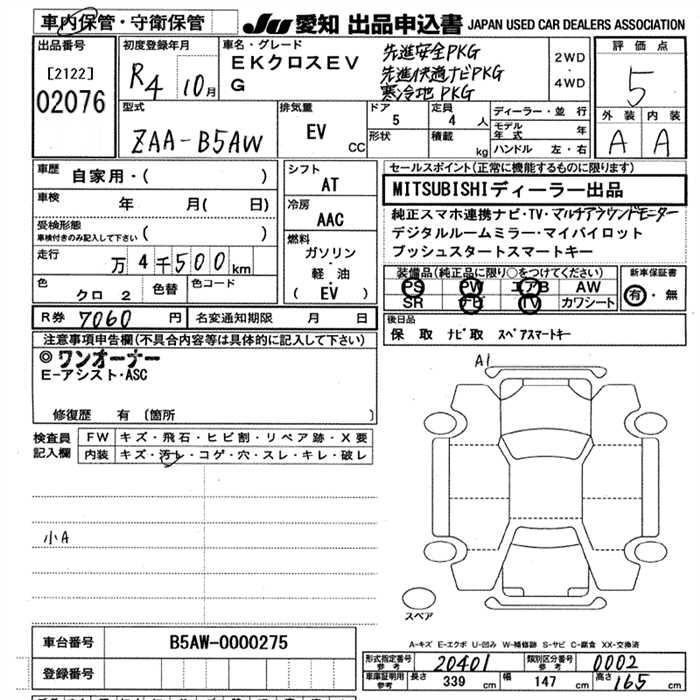 車内保管・守衛保管
JU 愛知 出品申込書 JAPAN USED CAR DEALERS ASSOCIATION
出品番号
[2122]
02076
初度登録年月
R4 10月
車名・グレード
EKクロスEV
G
先進安全PKG
先進快適ナビPKG
寒冷地PKG
2WD
・
4WD
評価点
5
外装 内装
A A
型式
ZAA-B5AW
排気量
EV
CC
ドア
5
定員
4 人
形状
積載
kg
ディーラー・並行
モデル年式 年
ハンドル 左・右
車歴
自家用・( )
車検
年 月( 日)
受検形態
車検付きのみ記入して下さい
( )
走行
万4千500km
色
クロ 2
色替
色コード
シフト
AT
冷房
AAC
燃料
ガソリン
・
軽・油
( EV )
セールスポイント(正常に機能するものに限ります)
MITSUBISHIディーラー出品
純正スマホ連携ナビ・TV・マルチアラウンドモニター
デジタルルームミラー・マイパイロット
プッシュスタートスマートキー
装備品(純正品に限り○をつけてください)
PS PW エアB AW
SR ナビ TV カワシート
新車保証書
有・無
R券 7060 円
名変通知期限 月 日
後日品
保 取 ナビ取 スペアスマートキー
注意事項申告欄(不具合内容等は具体的に記入して下さい)
◎ワンオーナー
E-アシスト・ASC
修復歴 有 (箇所 )
検査員
記入欄
FW キズ・飛石・ヒビ割・リペア跡・X要
内装 キズ・汚レ・コゲ・穴・スレ・キレ・破レ
小A
A1
スペア
A-キズ E-エクボ U-凹み W-補修跡 S-サビ C-腐食 XX-交換済
車台番号
B5AW-0000275
登録番号
形式指定番号
参考
20401
類別区分番号
参考
0002
車庫証明用
参考
長さ 339 cm
幅 147 cm
高さ 165 cm